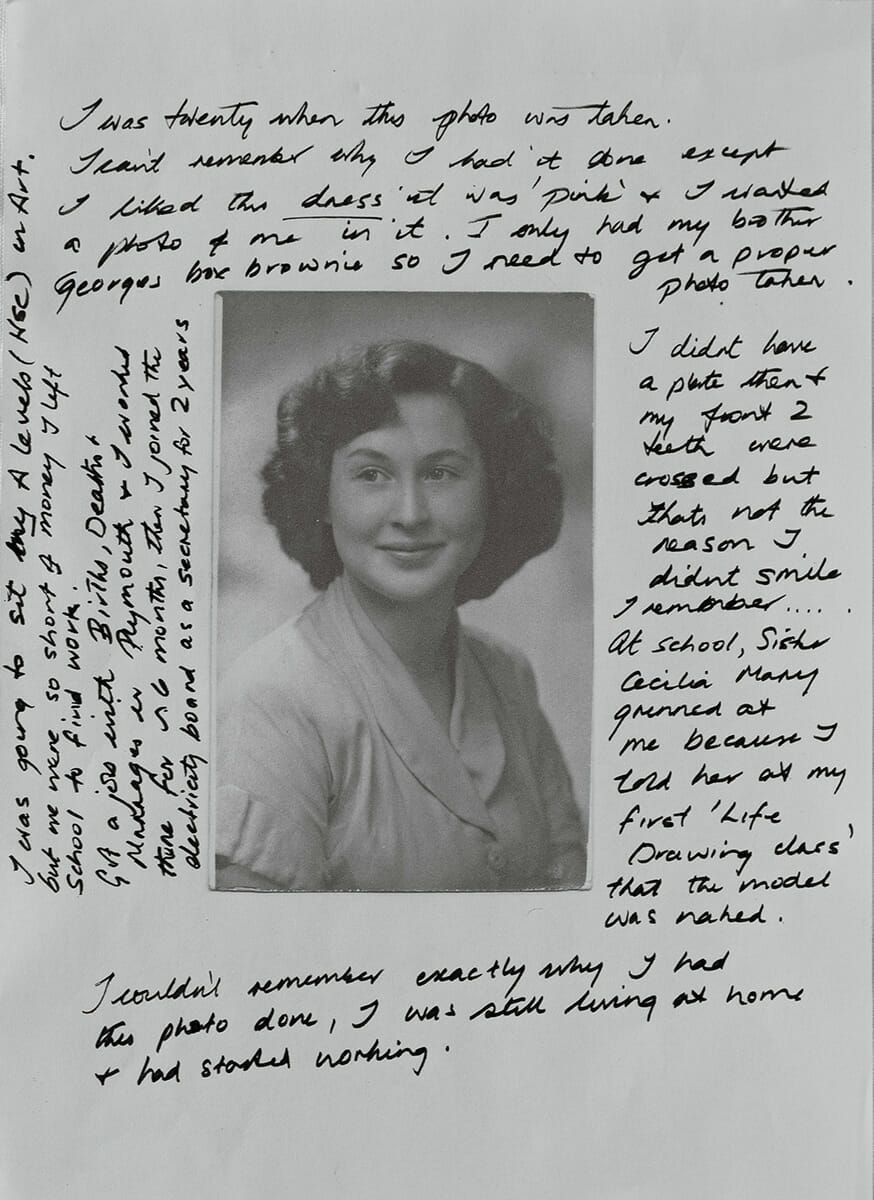 I was twenty when this photo was taken.
I can't remember why I had it done except
I liked this dress it was 'pink' & I wanted
a photo of me in it. I only had my brother
Georges box brownie so I need to get a proper
photo taken.
I didnt have
a plate then &
my front 2
teeth were
crossed but
thats not the
reason I
didnt smile
I remember.....
At school, Sister
Cecilia Mary
grinned at
me because I
told her at my
first 'Life
Drawing class'
that the model
was naked.
I couldn't remember exactly why I had
this photo done, I was still living at home
& had started working.
I was going to sit my A levels (HSC) in Art.
but we were so short of money I left
School to find work.
Got a job with Births, Deaths &
Marriages in Plymouth & I worked
there for 6 months, then I joined the
electricity board as a secretary for 2 years